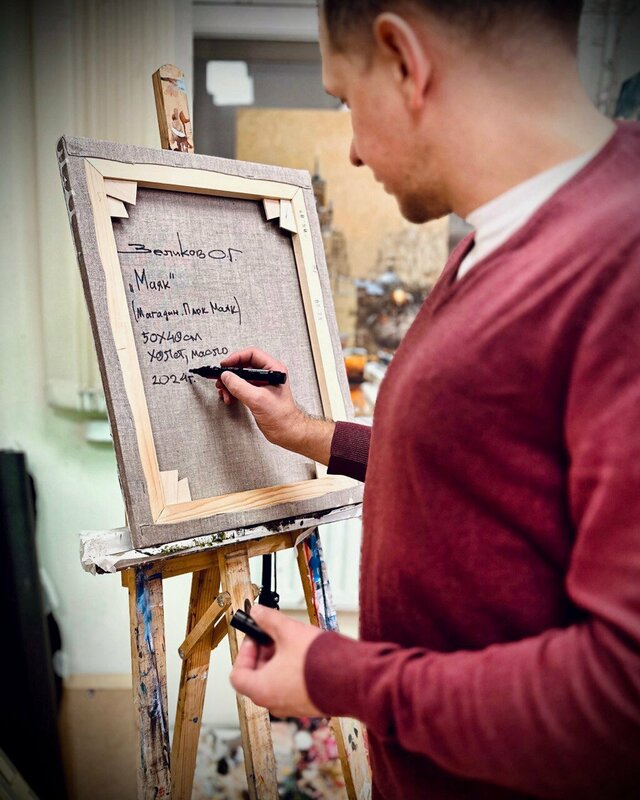 Зеликов О Г
„Маяк"
(Магадан. Парк Маяк)
50х40см
холст, масло
2024г.